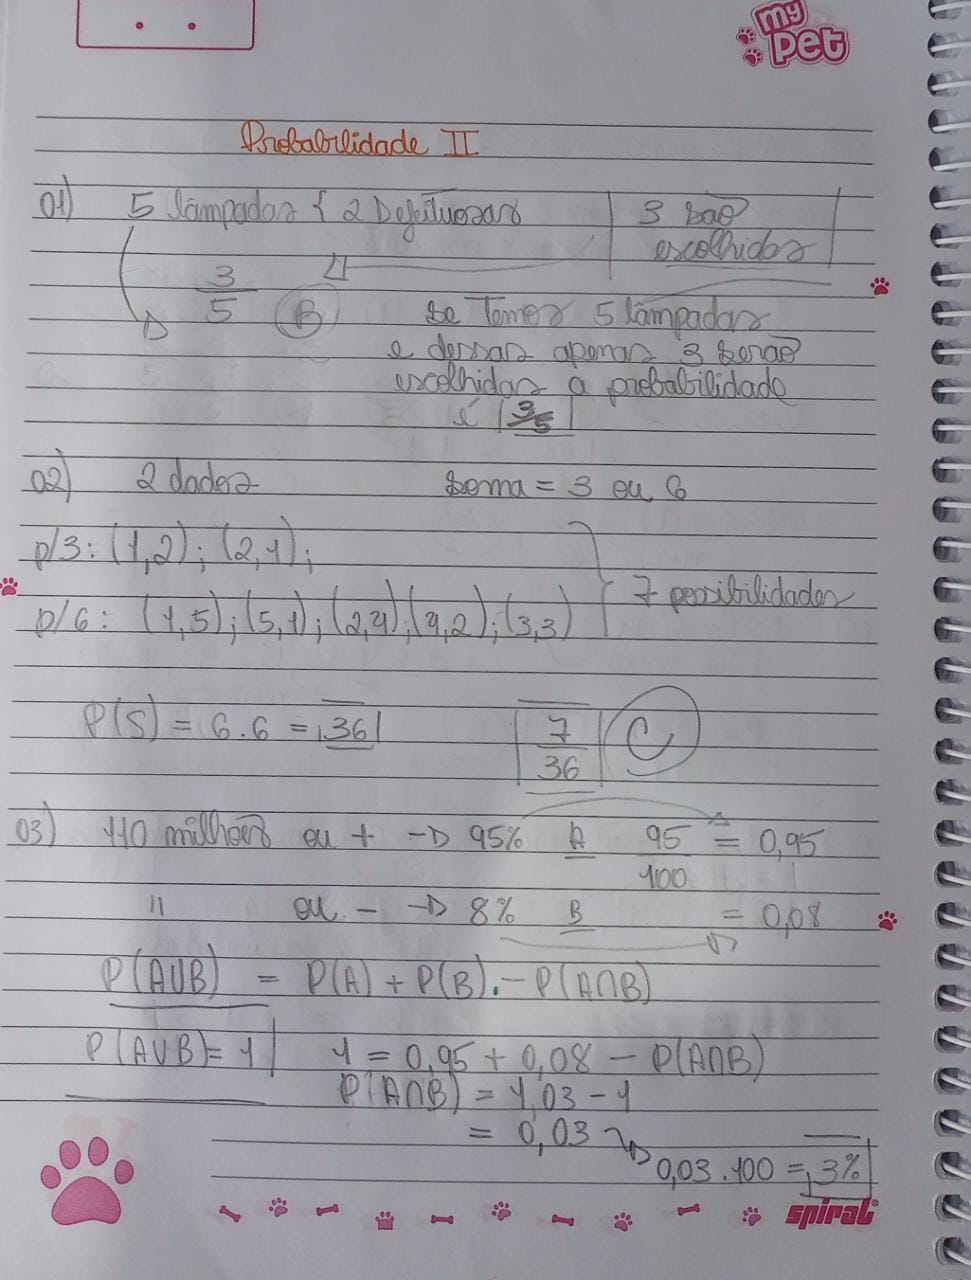 my
pet
Probabilidade II
01) 5 lâmpadas { 2 Defeituosas | 3 são
escolhidas
3
5 B se temos 5 lâmpadas
e dessas apenas 3 serão
escolhidas a probabilidade
é 3/5
02) 2 dados soma = 3 ou 6
p/3: (1,2); (2,1);
7 possibilidades
p/6: (1,5); (5,1); (2,4) (4,2); (3,3)
P(S) = 6.6 = 36 7 C
36
03) 110 milhões ou + → 95% A 95 = 0,95
100
" ou - → 8% B = 0,08
P(A∪B) = P(A) + P(B) - P(A∩B)
P(A∪B) = 1 1 = 0,95 + 0,08 - P(A∩B)
P(A∩B) = 1,03 - 1
= 0,03
0,03 . 100 = 3%
spiral